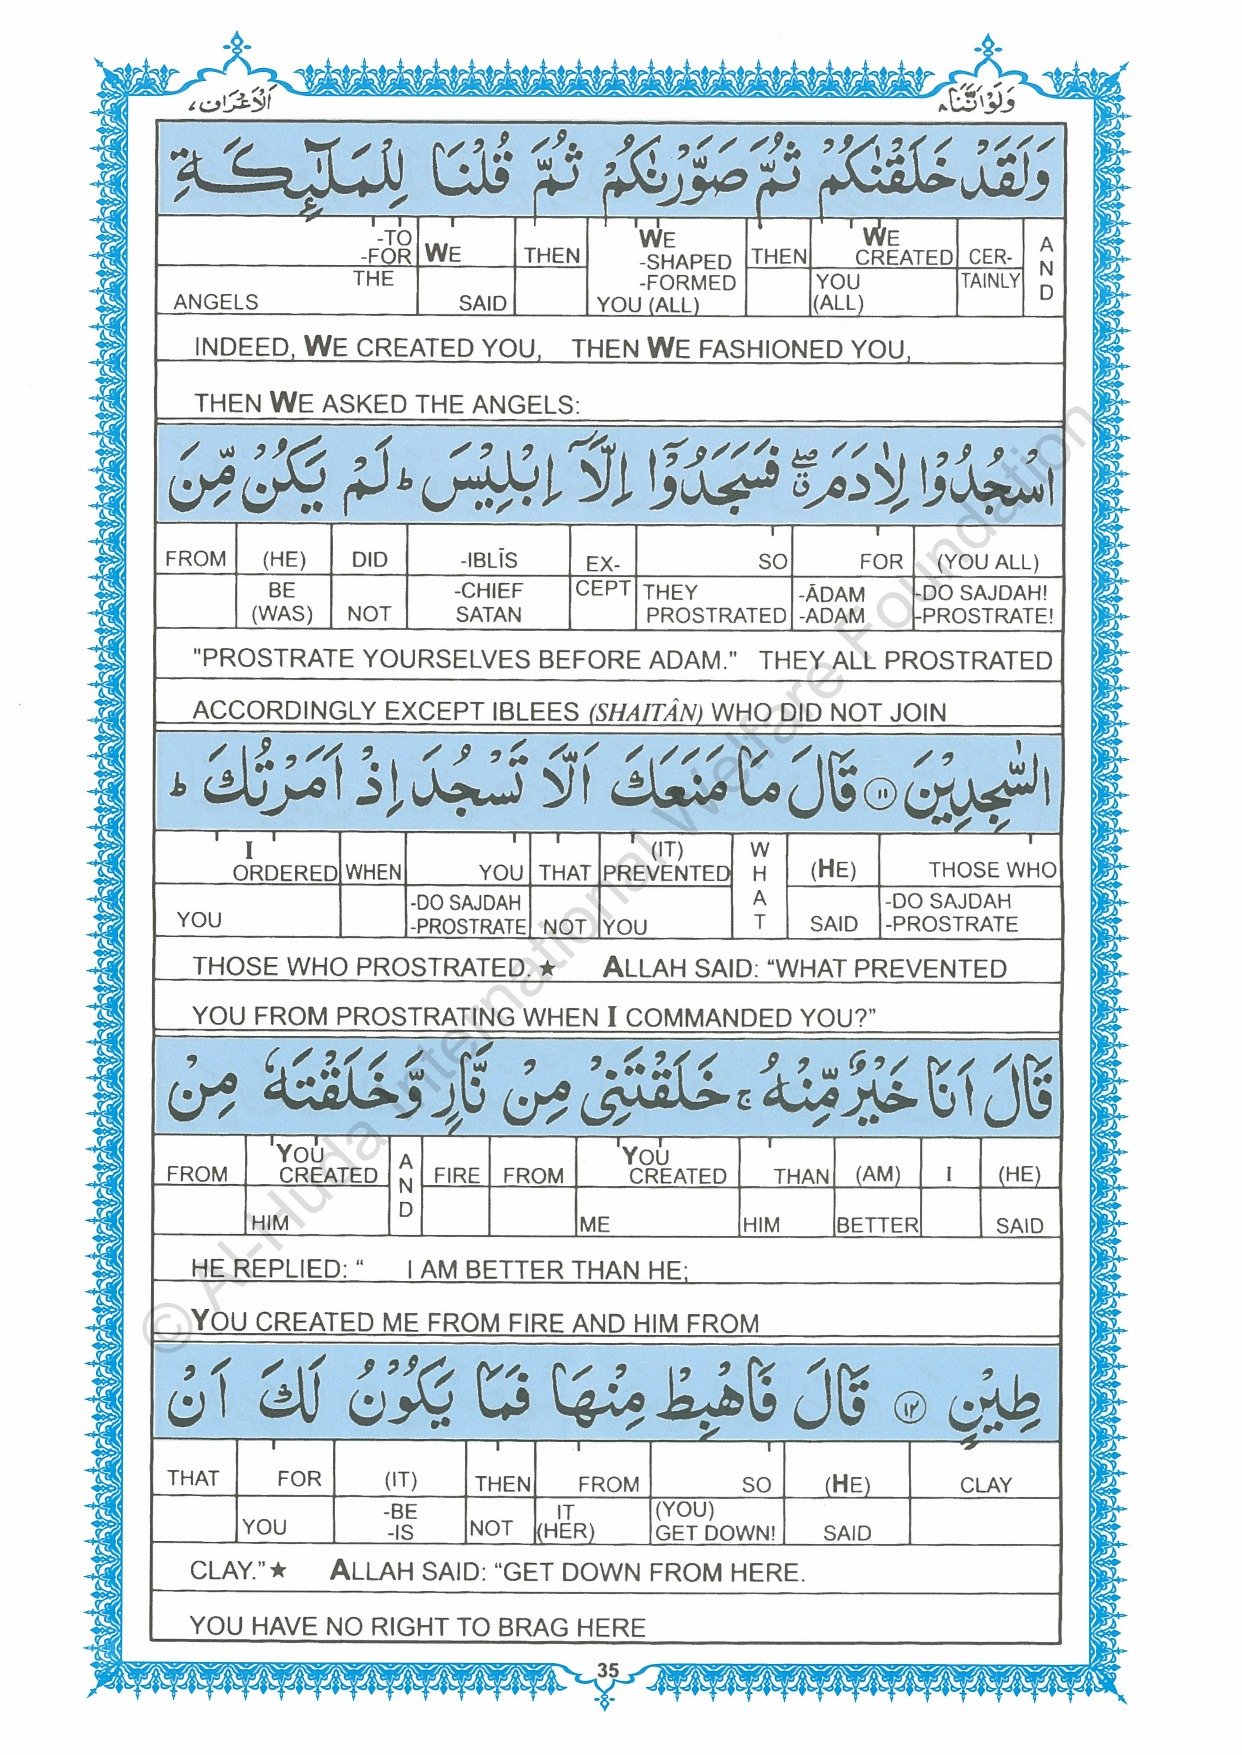 اَلْاَعْرَاف ٧ وَلَوْ اَنَّنَا ٨
وَلَقَدْ خَلَقْنٰكُمْ ثُمَّ صَوَّرْنٰكُمْ ثُمَّ قُلْنَا لِلْمَلٰٓئِكَةِ
-TO WE THEN WE THEN WE CER- AND
-FOR -SHAPED CREATED
THE -FORMED YOU TAINLY
ANGELS SAID YOU (ALL) (ALL)
INDEED, WE CREATED YOU, THEN WE FASHIONED YOU,
THEN WE ASKED THE ANGELS:
اسْجُدُوْا لِاٰدَمَ ۖۗ فَسَجَدُوْٓا اِلَّآ اِبْلِيْسَ ؕ لَمْ يَكُنْ مِّنَ
FROM (HE) DID -IBLĪS EX- SO FOR (YOU ALL)
BE -CHIEF CEPT THEY -ĀDAM -DO SAJDAH!
(WAS) NOT SATAN PROSTRATED -ADAM -PROSTRATE!
"PROSTRATE YOURSELVES BEFORE ADAM." THEY ALL PROSTRATED
ACCORDINGLY EXCEPT IBLEES (SHAITÂN) WHO DID NOT JOIN
السّٰجِدِيْنَ ١١ قَالَ مَا مَنَعَكَ اَلَّا تَسْجُدَ اِذْ اَمَرْتُكَ ؕ
I (IT) WHAT (HE) THOSE WHO
ORDERED WHEN YOU THAT PREVENTED
-DO SAJDAH -DO SAJDAH
YOU -PROSTRATE NOT YOU SAID -PROSTRATE
THOSE WHO PROSTRATED.★ ALLAH SAID: “WHAT PREVENTED
YOU FROM PROSTRATING WHEN I COMMANDED YOU?”
قَالَ اَنَا خَيْرٌ مِّنْهُ ۚ خَلَقْتَنِيْ مِنْ نَّارٍ وَّخَلَقْتَهٗ مِنْ
FROM YOU AND FIRE FROM YOU THAN (AM) I (HE)
CREATED CREATED
HIM ME HIM BETTER SAID
HE REPLIED: “ I AM BETTER THAN HE;
YOU CREATED ME FROM FIRE AND HIM FROM
طِيْنٍ ١٢ قَالَ فَاهْبِطْ مِنْهَا فَمَا يَكُوْنُ لَكَ اَنْ
THAT FOR (IT) THEN FROM SO (HE) CLAY
-BE IT (YOU)
YOU -IS NOT (HER) GET DOWN! SAID
CLAY.”★ ALLAH SAID: “GET DOWN FROM HERE.
YOU HAVE NO RIGHT TO BRAG HERE
35
© Al-Huda International Welfare Foundation